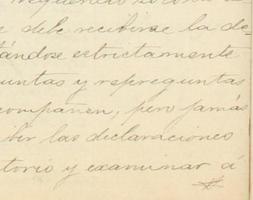 debe recibirse la de=
tándose estrictamente
untas y repreguntas
compañen, pero jamás
bir las declaraciones
torio y examinar á